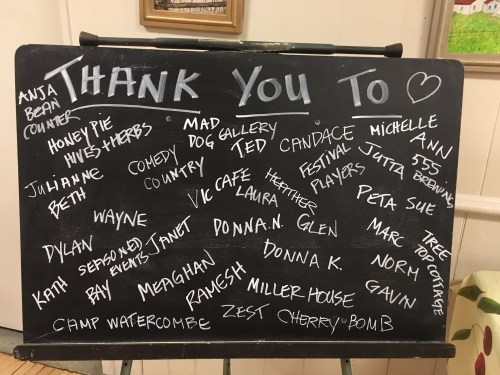 THANK YOU TO ♡
ANJA
BEAN
COUNTER
HONEY PIE
HIVES + HERBS
MAD
DOG GALLERY
TED
CANDACE
MICHELLE
ANN
JULIANNE
BETH
COMEDY
COUNTRY
FESTIVAL
PLAYERS
JUTTA
555
BREWING
VIC CAFE
LAURA
HEATHER
PETA SUE
WAYNE
JANET
DONNA.N.
GLEN
MARC
TREE
TOP COTTAGE
DYLAN
SEASONED
EVENTS
DONNA K.
NORM
KATH
BAY
MEAGHAN
RAMESH
MILLER HOUSE
GAVIN
CAMP WATERCOMBE
ZEST
CHERRY BOMB